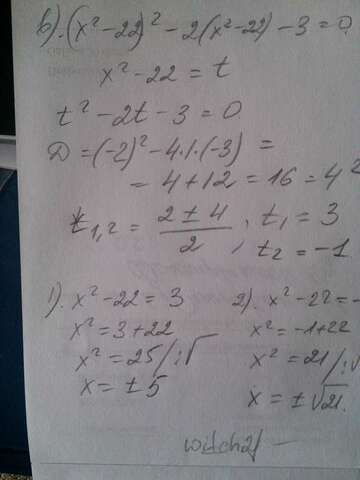 b). (x² - 22)² - 2(x² - 22) - 3 = 0
x² - 22 = t
t² - 2t - 3 = 0
D = (-2)² - 4·1·(-3) =
= 4 + 12 = 16 = 4²
t₁,₂ = (2 ± 4)/2, t₁ = 3, t₂ = -1
1). x² - 22 = 3
x² = 3 + 22
x² = 25 /:√
x = ± 5
2). x² - 22 = -
x² = -1 + 22
x² = 21 /:√
x = ± √21.
witch21